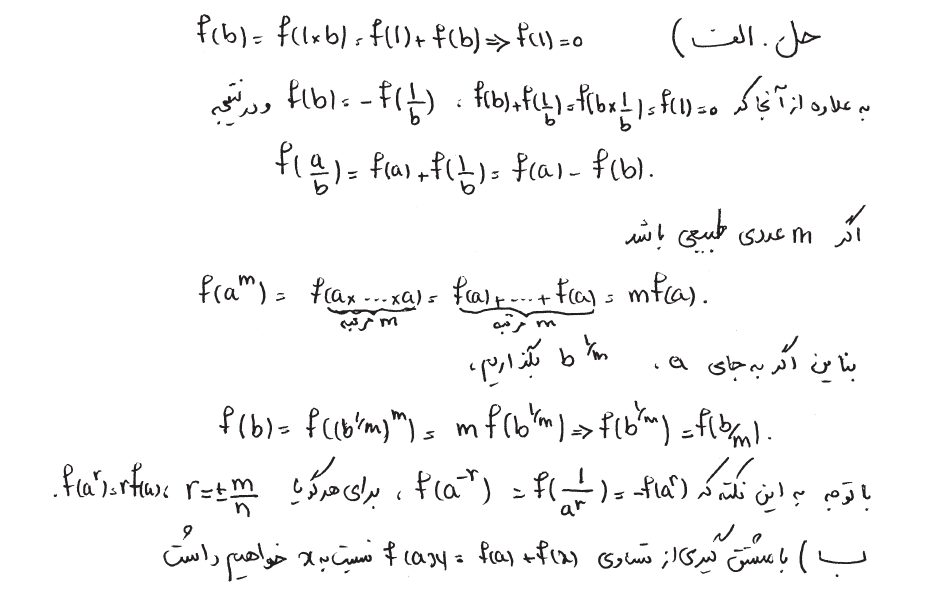 حل. الف) f(b) = f(1×b) = f(1) + f(b) ⇒ f(1) = 0
به علاوه از آنجا که f(b) + f(1/b) = f(b × 1/b) = f(1) = 0 ، f(b) = -f(1/b) و در نتیجه
f(a/b) = f(a) + f(1/b) = f(a) - f(b).
اگر m عددی طبیعی باشد
f(a^m) = f(a× ... ×a) = f(a) + ... + f(a) = mf(a).
m مرتبه m مرتبه
بناین اگر به جای a ، b^1/m بگذاریم،
f(b) = f((b^1/m)^m) = m f(b^1/m) ⇒ f(b^1/m) = f(b/m).
با توجه به این نکته که f(a^-r) = f(1/a^r) = -f(a^r) ، برای هر گویا r = ±m/n ، f(a^r) = rf(a).
ب) با مشتق گیری از تساوی f(ax) = f(a) + f(x) نسبت به x خواهیم داشت